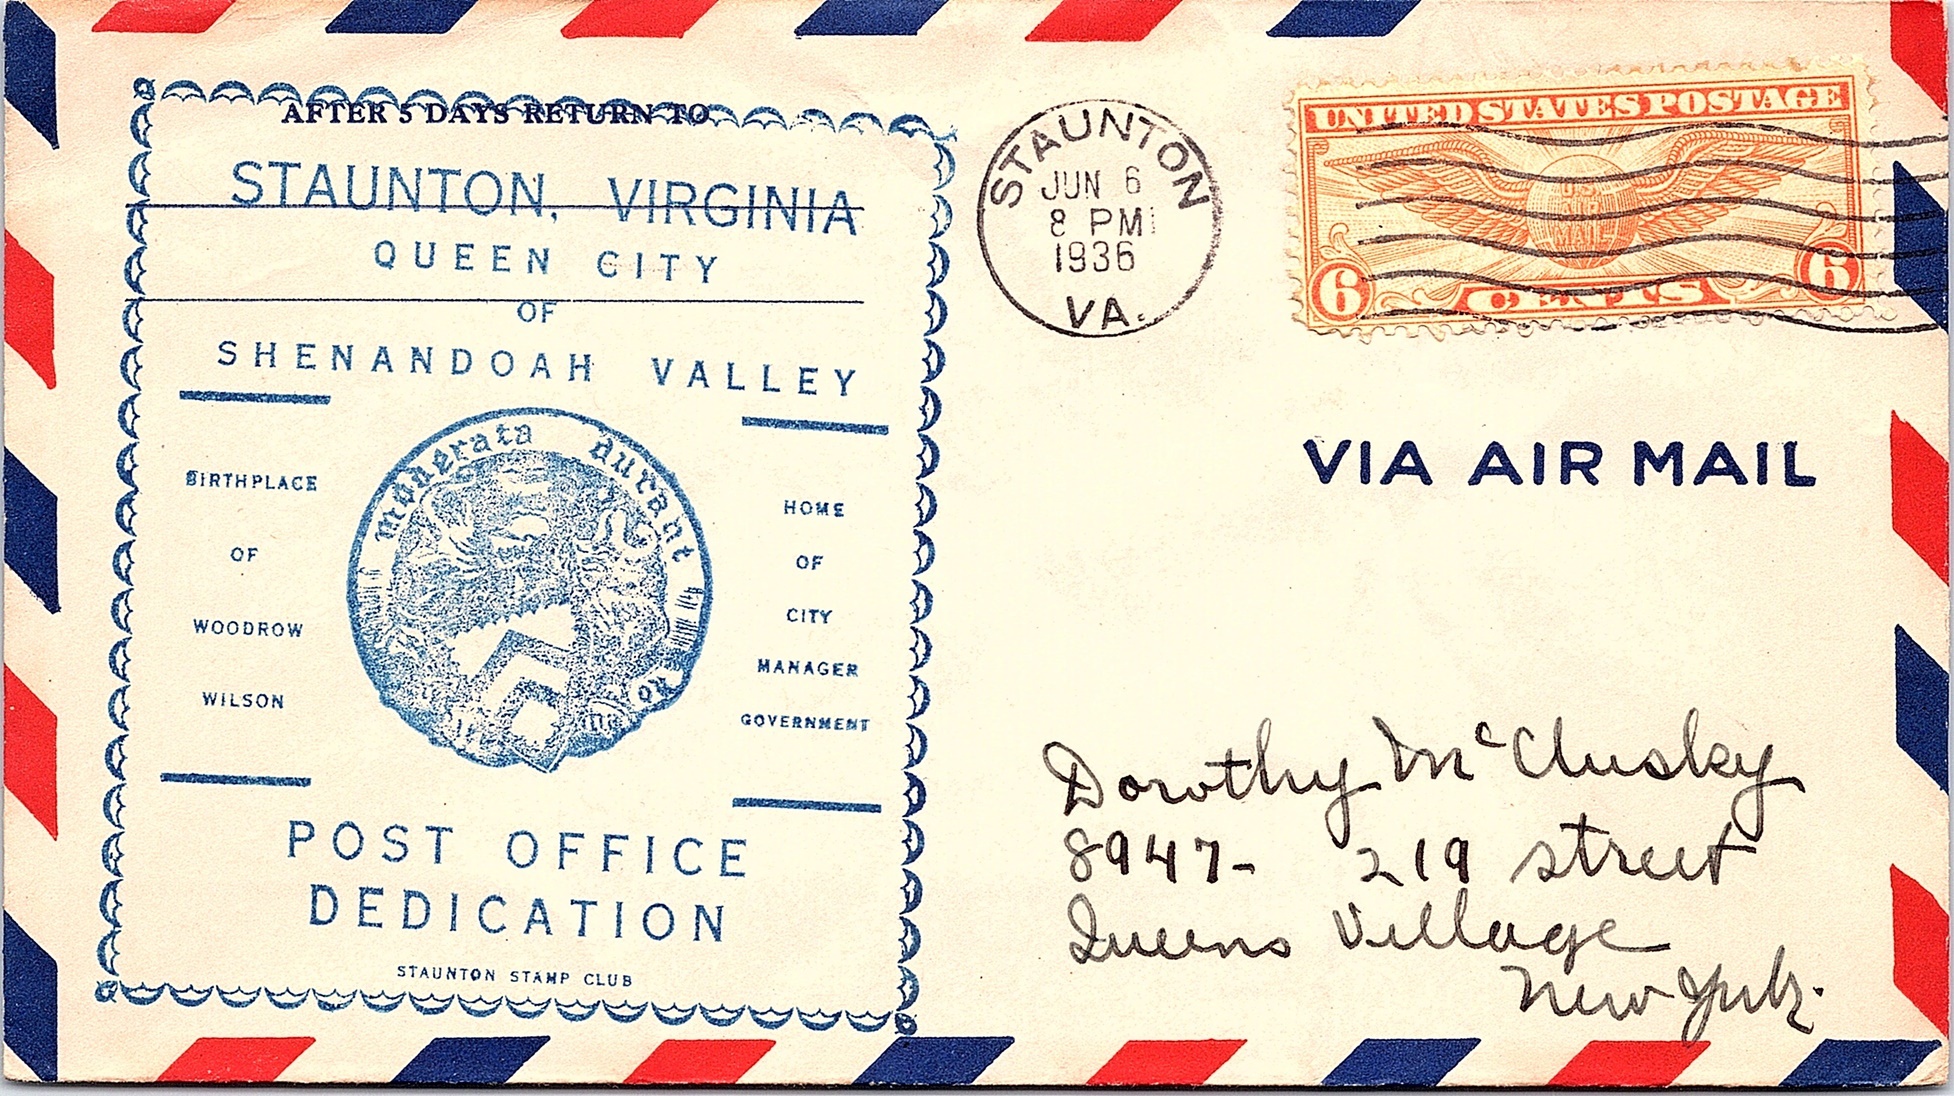 AFTER 5 DAYS RETURN TO
STAUNTON, VIRGINIA
QUEEN CITY
OF
SHENANDOAH VALLEY
BIRTHPLACE
OF
WOODROW
WILSON
Moderata Durant
HOME
OF
CITY
MANAGER
GOVERNMENT
POST OFFICE
DEDICATION
STAUNTON STAMP CLUB
STAUNTON
JUN 6
8 PM
1936
VA.
UNITED STATES POSTAGE
U.S.
AIR
MAIL
6 CENTS 6
VIA AIR MAIL
Dorothy McClusky
8947- 219 street
Queens Village
New York.